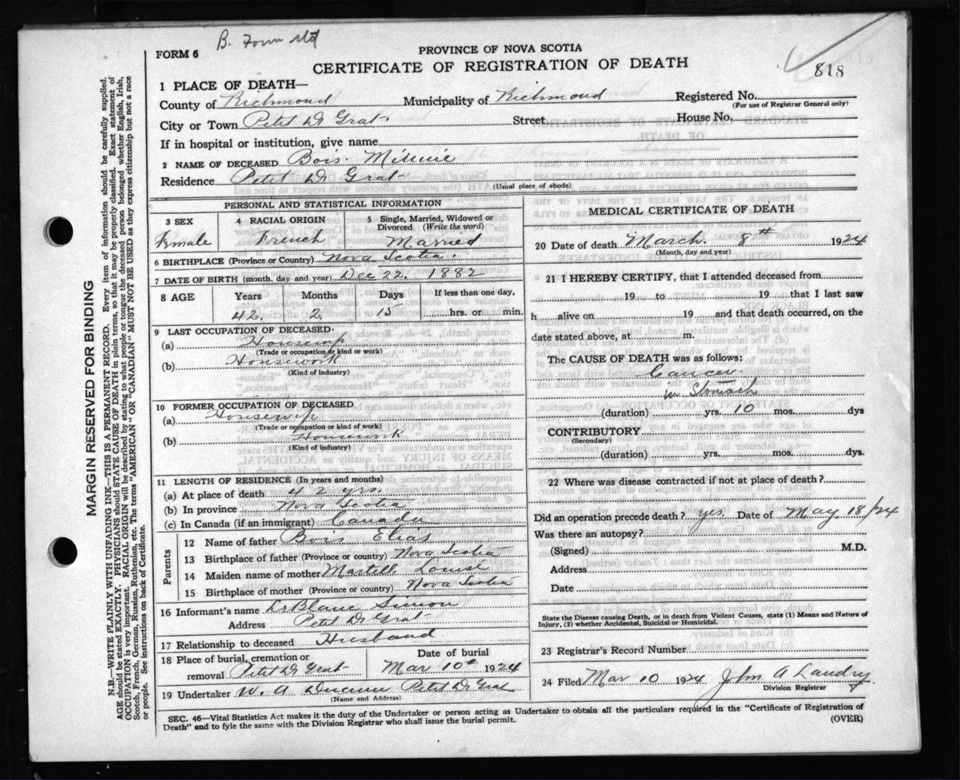 B. Form
FORM 6
PROVINCE OF NOVA SCOTIA
CERTIFICATE OF REGISTRATION OF DEATH
818
1 PLACE OF DEATH—
County of Richmond Municipality of Richmond Registered No.
(For use of Registrar General only)
City or Town Petit D Grat Street House No.
If in hospital or institution, give name
2 NAME OF DECEASED Bois. Minnie
Residence Petit D Grat
(Usual place of abode)
PERSONAL AND STATISTICAL INFORMATION
3 SEX 4 RACIAL ORIGIN 5 Single, Married, Widowed or Divorced (Write the word)
Female French Married
6 BIRTHPLACE (Province or Country) Nova Scotia.
7 DATE OF BIRTH (month, day and year) Dec 22. 1882
8 AGE Years Months Days If less than one day,
42. 2 15 hrs. or min.
9 LAST OCCUPATION OF DECEASED.
(a) Housewife
(Trade or occupation or kind or work)
(b) Housework
(Kind of industry)
10 FORMER OCCUPATION OF DECEASED
(a) Housewife
(Trade or occupation or kind or work)
(b) Housework
(Kind of industry)
11 LENGTH OF RESIDENCE (In years and months)
(a) At place of death 42 yrs.
(b) In province Nova Scotia
(c) In Canada (if an immigrant) Canada
Parents
12 Name of father Bois Elias
13 Birthplace of father (Province or country) Nova Scotia
14 Maiden name of mother Martell Louise
15 Birthplace of mother (Province or country) Nova Scotia
16 Informant's name LeBlanc Simon
Address Petit D Grat
17 Relationship to deceased Husband
18 Place of burial, cremation or removal Petit D Grat Date of burial Mar 10th 1924
19 Undertaker W. A. Petit D Grat
(Name and Address)
MEDICAL CERTIFICATE OF DEATH
20 Date of death March. 8th 1924
(Month, day and year)
21 I HEREBY CERTIFY, that I attended deceased from
19 to 19 that I last saw
h alive on 19 and that death occurred, on the
date stated above, at m.
The CAUSE OF DEATH was as follows:
Cancer
in Stomach
(duration) yrs. 10 mos. dys
CONTRIBUTORY
(Secondary)
(duration) yrs. mos. dys
22 Where was disease contracted if not at place of death?
Did an operation precede death? yes. Date of May 18/24
Was there an autopsy?
(Signed) M.D.
Address
Date
State the Disease causing Death, or in death from Violent Causes, state (1) Means and Nature of
Injury, (2) whether Accidental, Suicidal or Homicidal.
23 Registrar's Record Number
24 Filed Mar 10 1924 John A Landry
Division Registrar
SEC. 46—Vital Statistics Act makes it the duty of the Undertaker or person acting as Undertaker to obtain all the particulars required in the "Certificate of Registration of
Death" and to fyle the same with the Division Registrar who shall issue the burial permit. (OVER)
MARGIN RESERVED FOR BINDING
N.B.—WRITE PLAINLY WITH UNFADING INK—THIS IS A PERMANENT RECORD. Every item of information should be carefully supplied.
AGE should be stated EXACTLY. PHYSICIANS should STATE CAUSE OF DEATH in plain terms, so that it may be properly classified. Exact statement of
OCCUPATION is very important. RACIAL ORIGIN will be described by stating to what people or tongue the deceased person belonged whether English, Irish,
Scotch, French, German, Russian, Ruthenian, etc. The terms "AMERICAN" OR "CANADIAN" MUST NOT BE USED as they express citizenship but not a race
or people. See instructions on back of Certificate.